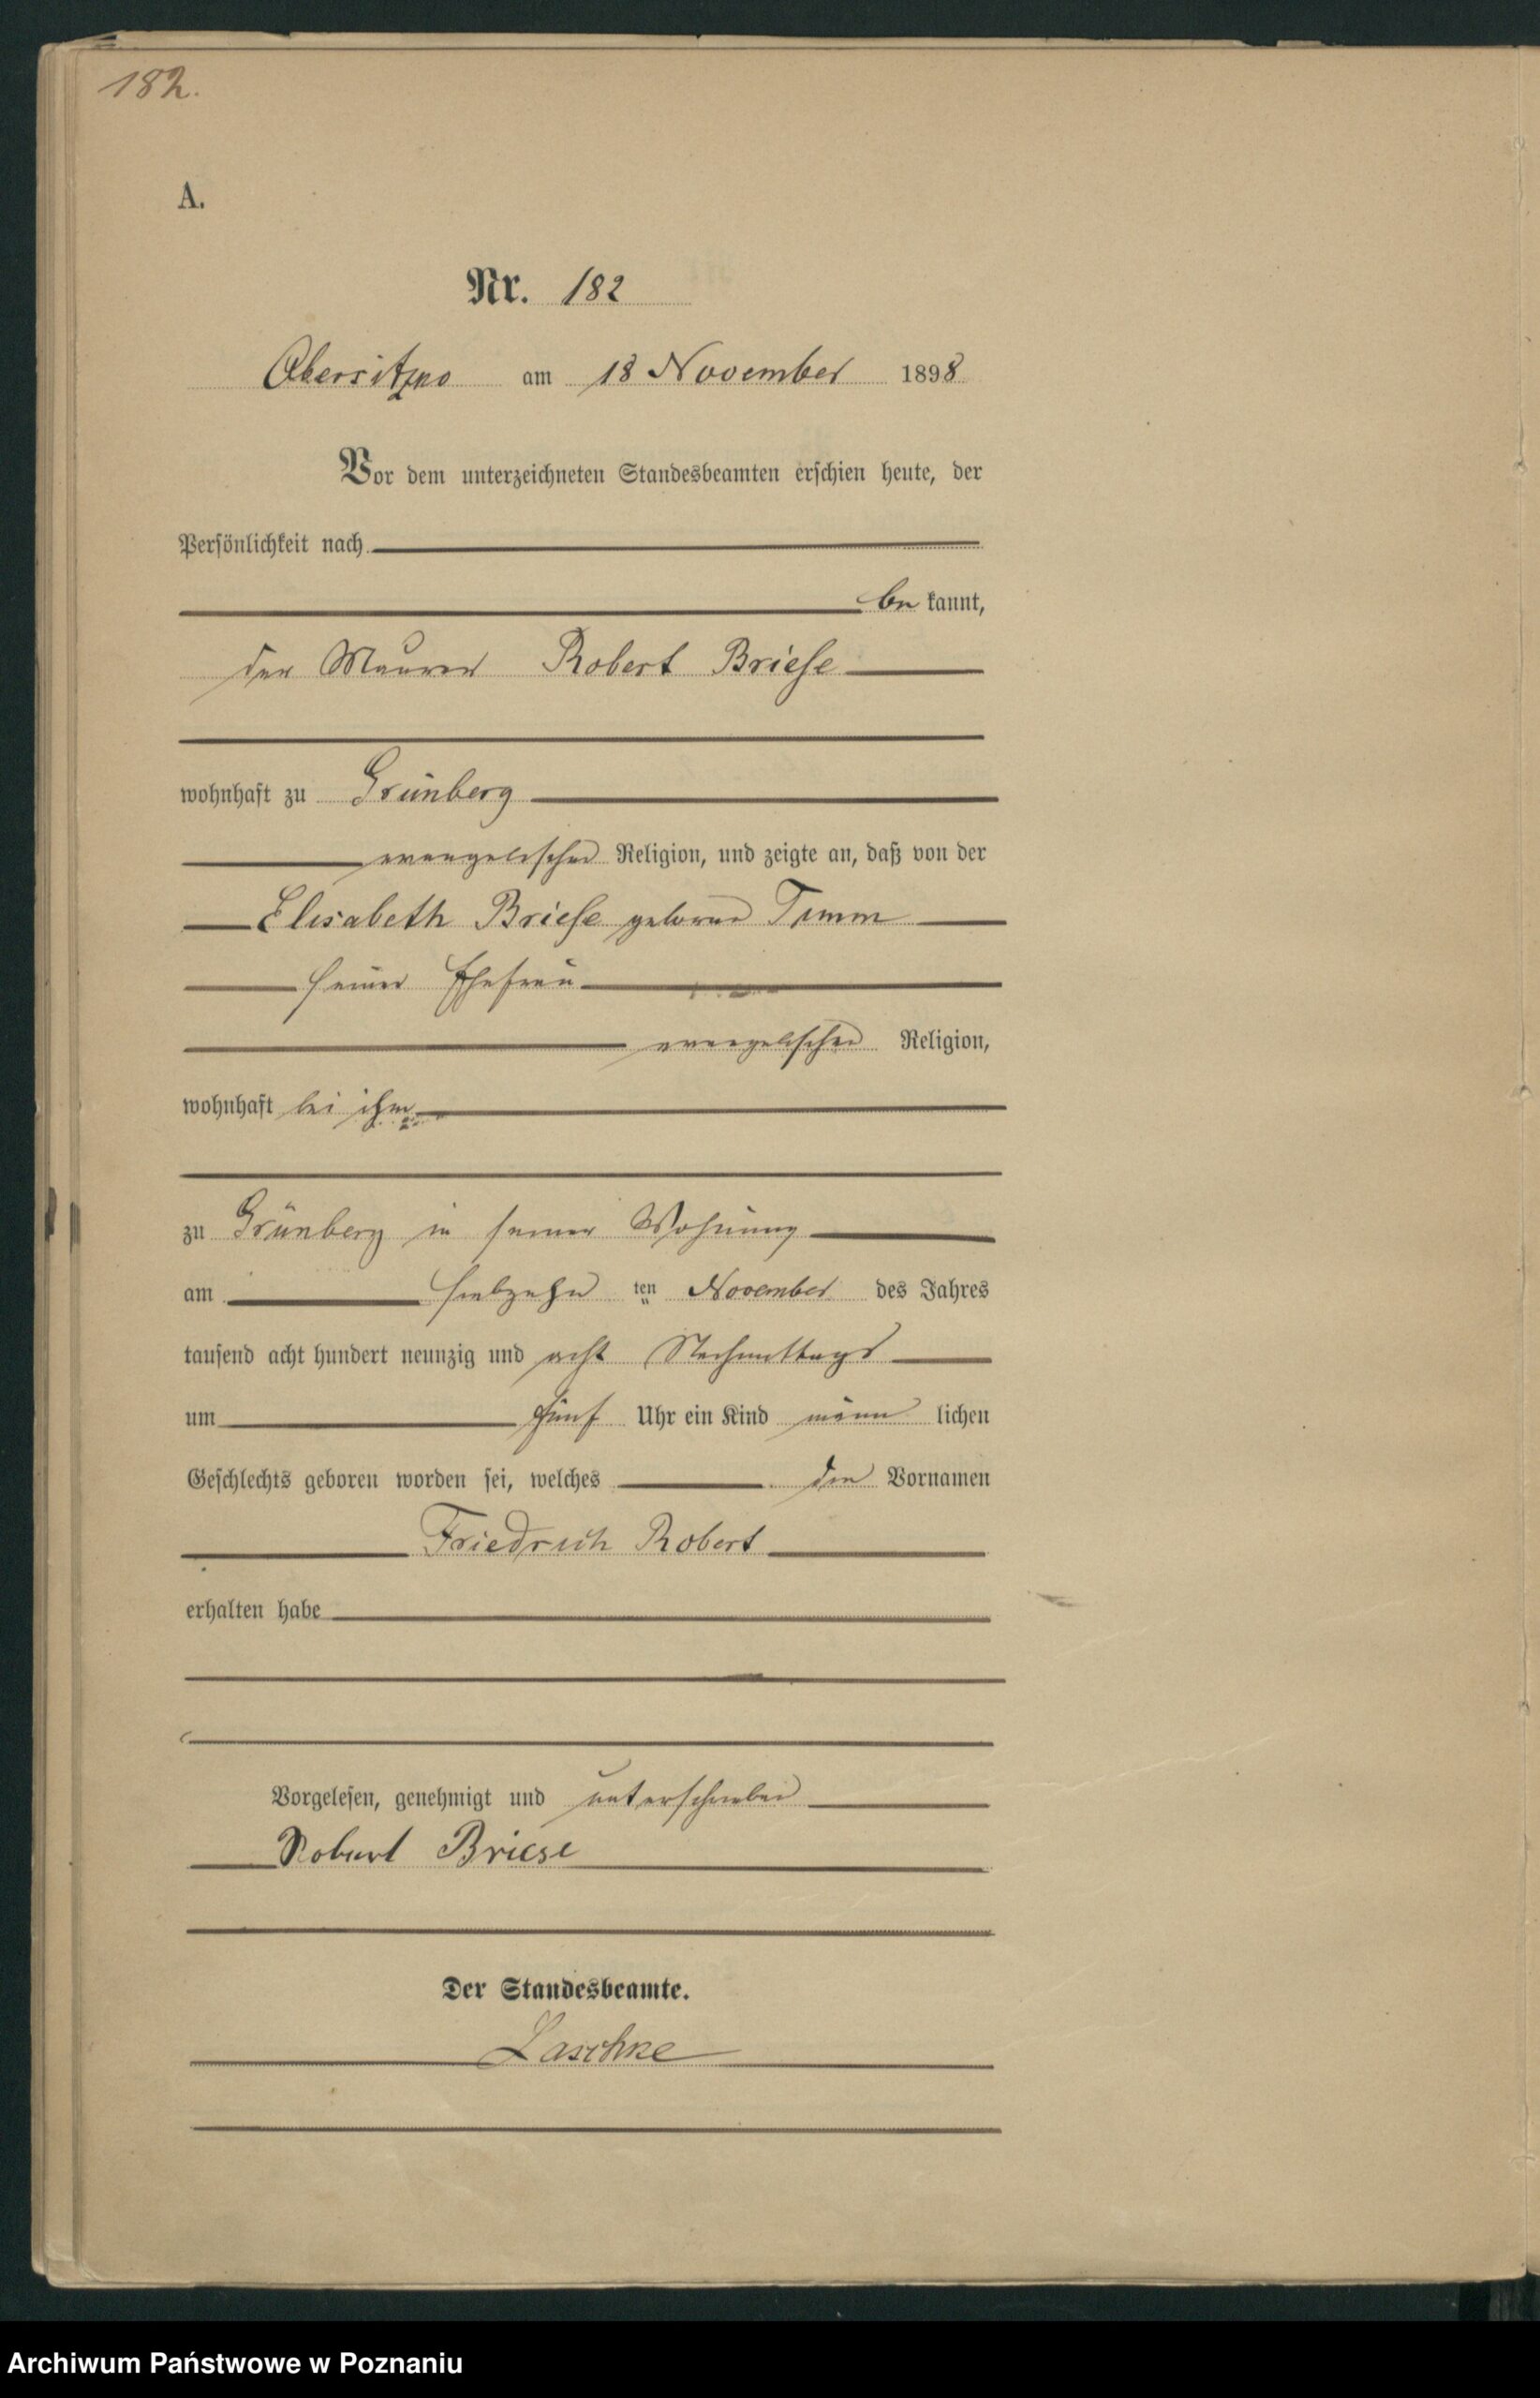 182.
A.
Nr. 182
Obersitzko am 18 November 1898
Vor dem unterzeichneten Standesbeamten erschien heute, der
Persönlichkeit nach
be kannt,
der Maurer Robert Briese
wohnhaft zu Grünberg
evangelischer Religion, und zeigte an, daß von der
Elisabeth Briese geborne Timm
seiner Ehefrau
evangelischer Religion,
wohnhaft bei ihm
zu Grünberg in seiner Wohnung
am siebzehn ten November des Jahres
tausend acht hundert neunzig und acht Nachmittags
um fünf Uhr ein Kind männ lichen
Geschlechts geboren worden sei, welches den Vornamen
Friedrich Robert
erhalten habe
Vorgelesen, genehmigt und unterschrieben
Robert Briese
Der Standesbeamte.
Laschke
Archiwum Państwowe w Poznaniu